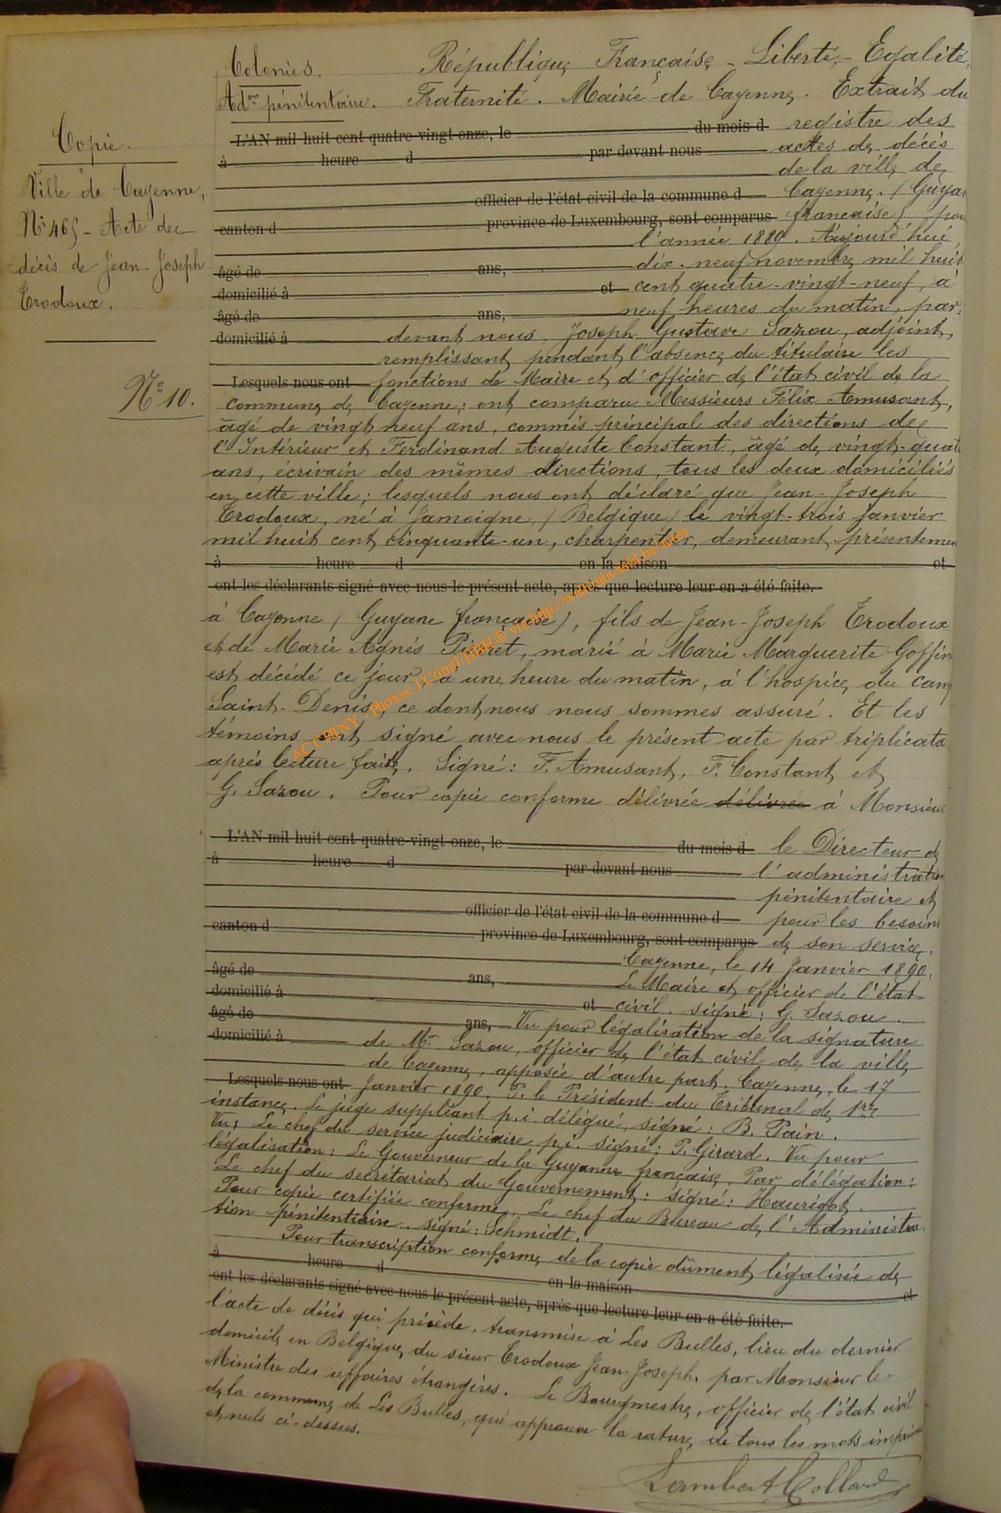 Colonies.
Adon pénitentaire.
République Française - Liberté - Egalité,
Fraternité. Mairie de Cayenne. Extrait du
Copie.
Ville de Cayenne,
N° 465 - Acte de
décès de Jean-Joseph
Trodoux.
N° 10.
L'AN mil huit cent quatre-vingt-onze, le du mois d registre des
à heure d par devant nous actes de décès
de la ville de
officier de l'état civil de la commune d Cayenne. (Guyane
canton d province de Luxembourg, sont comparus française) pour
l'année 1889. Aujourd'hui
âgé de ans, dix-neuf novembre mil huit
domicilié à et cent quatre-vingt-neuf, à
âgé de ans, neuf heures du matin, par-
domicilié à devant nous, Joseph Gustave Sazou, adjoint,
remplissant pendant l'absence du titulaire les
Lesquels nous ont fonctions de Maire et d'officier de l'état civil de la
commune de Cayenne; ont comparu Messieurs Félix Amusant,
âgé de vingt neuf ans, commis principal des directions de
l'Intérieur et Ferdinand Auguste Constant, âgé de vingt-quatre
ans, écrivain des mêmes directions, tous les deux domiciliés
en cette ville; lesquels nous ont déclaré que Jean-Joseph
Trodoux, né à Jamoigne, (Belgique) le vingt-trois janvier
mil huit cent cinquante-un, charpentier, demeurant présentement
à heure d en la maison et
ont les déclarants signé avec nous le présent acte, après que lecture leur en a été faite.
à Cayenne (Guyane française), fils de Jean-Joseph Trodoux
et de Marie Agnès Pierret, marié à Marie Marguerite Goffin
est décédé ce jour à une heure du matin, à l'hospice du camp
Saint-Denis, ce dont nous nous sommes assuré. Et les
témoins ont signé avec nous le présent acte par triplicata
après lecture faite. Signé: F. Amusant, F. Constant et
G. Sazou. Pour copie conforme délivrée délivrée à Monsieur
L'AN mil huit cent quatre-vingt-onze, le du mois d le Directeur de
à heure d par devant nous l'administration
pénitentaire et
officier de l'état civil de la commune d pour les besoins
canton d province de Luxembourg, sont comparus de son service.
Cayenne, le 14 Janvier 1890.
âgé de ans, Le Maire et officier de l'état
domicilié à et civil. signé: G. Sazou.
âgé de ans, Vu pour légalisation de la signature
domicilié à de Mr Sazou, officier de l'état civil de la ville
de Cayenne, apposée d'autre part. Cayenne, le 17
Lesquels nous ont Janvier 1890. P. le Président du Tribunal de 1re
instance. Le juge suppléant p.i. délégué, signé: B. Pain.
Vu, Le chef du service judiciaire p.i. signé: P. Girard. Vu pour
légalisation: Le Gouverneur de la Guyane française, Par délégation:
Le chef du secrétariat du Gouvernement: signé: Haurigot.
Pour copie certifiée conforme. Le chef du Bureau de l'Administra-
tion pénitentiaire. signé: Schmidt.
Pour transcription conforme de la copie dûment légalisée de
à heure d en la maison et
ont les déclarants signé avec nous le présent acte, après que lecture leur en a été faite.
l'acte de décès qui précède, transmise à Les Bulles, lieu du dernier
domicile en Belgique, du sieur Trodoux Jean-Joseph, par Monsieur le
Ministre des affaires étrangères. Le Bourgmestre, officier de l'état civil
de la commune de Les Bulles, qui approuve la rature de tous les mots imprimés
et nuls ci-dessus.
Lambert Collard
ACCHINY - Photos: J.Coml/HBH ® via http://